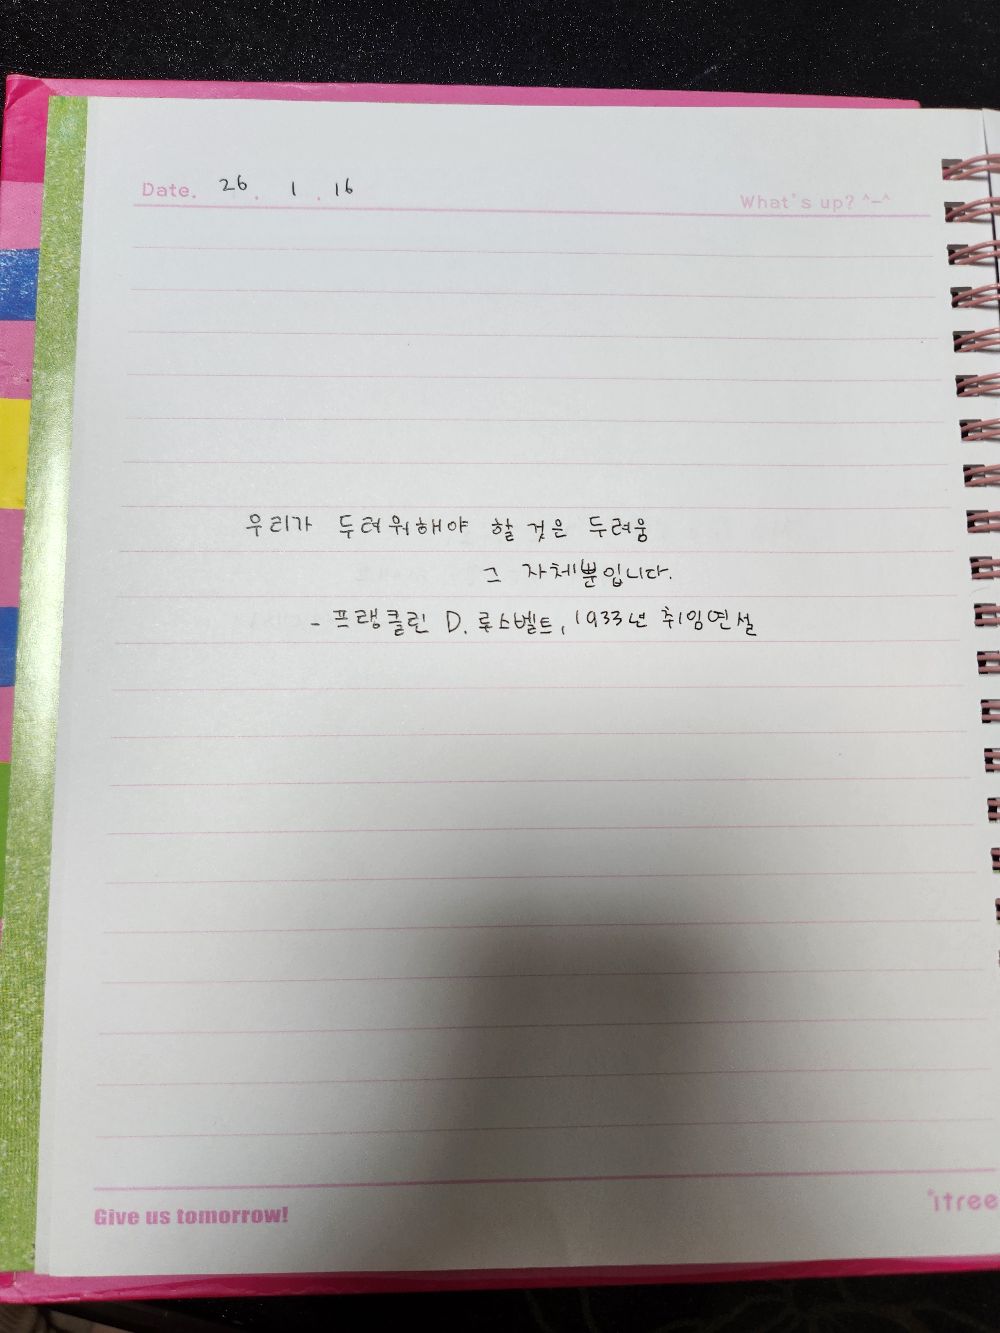 Date. 26. 1. 16
What's up? ^-^
우리가 두려워해야 할 것은 두려움
그 자체뿐입니다.
- 프랭클린 D. 루스벨트, 1933년 취임연설
Give us tomorrow!
itree